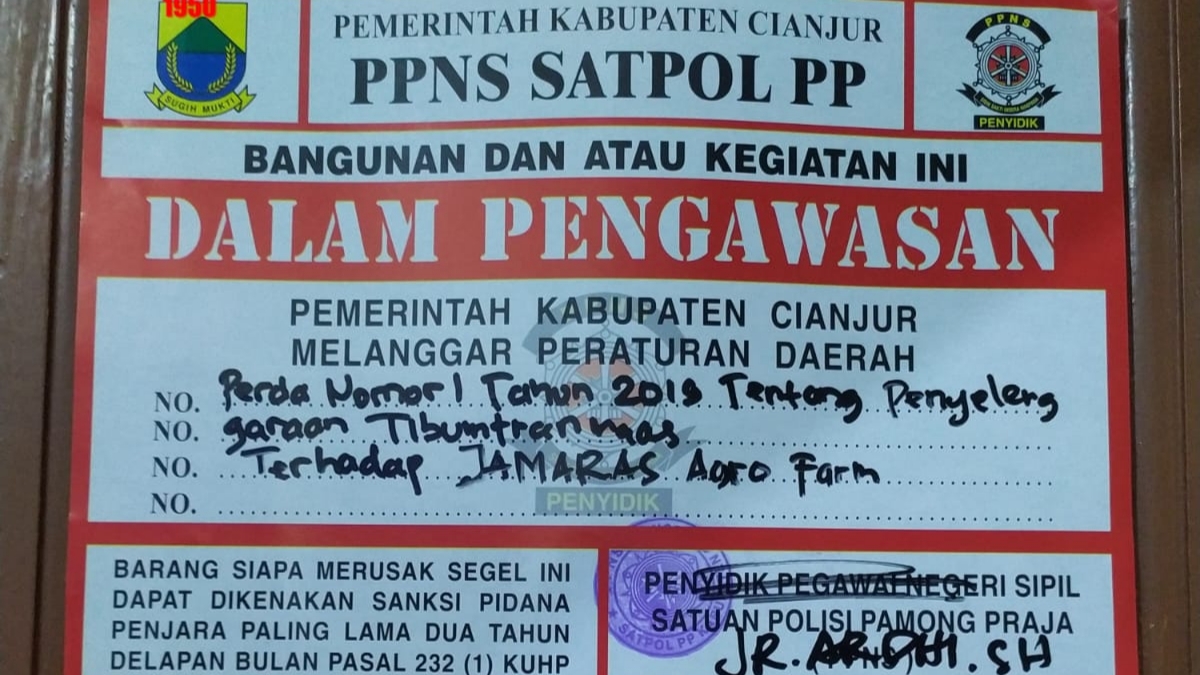 1950
SUGIH MUKTI
PEMERINTAH KABUPATEN CIANJUR
PPNS SATPOL PP
PPNS
PENYIDIK
BANGUNAN DAN ATAU KEGIATAN INI
DALAM PENGAWASAN
PEMERINTAH KABUPATEN CIANJUR
MELANGGAR PERATURAN DAERAH
NO. Perda Nomor 1 Tahun 2019 Tentang Penyeleng
NO. garaan Tibumtranmas
NO. Terhadap JAMARAS Agro Farm
NO.
PENYIDIK
BARANG SIAPA MERUSAK SEGEL INI
DAPAT DIKENAKAN SANKSI PIDANA
PENJARA PALING LAMA DUA TAHUN
DELAPAN BULAN PASAL 232 (1) KUHP
PENYIDIK PEGAWAI NEGERI SIPIL
SATUAN POLISI PAMONG PRAJA
SATPOL PP
JR. ARDHI. SH